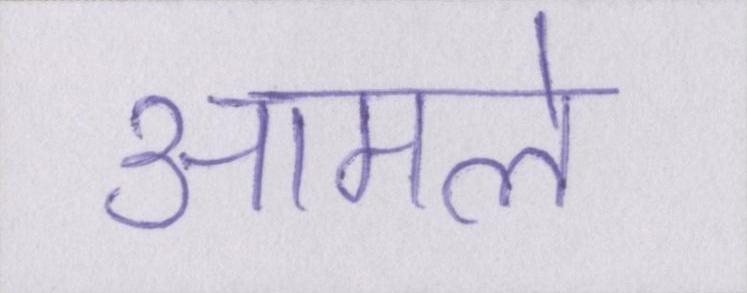 आमले